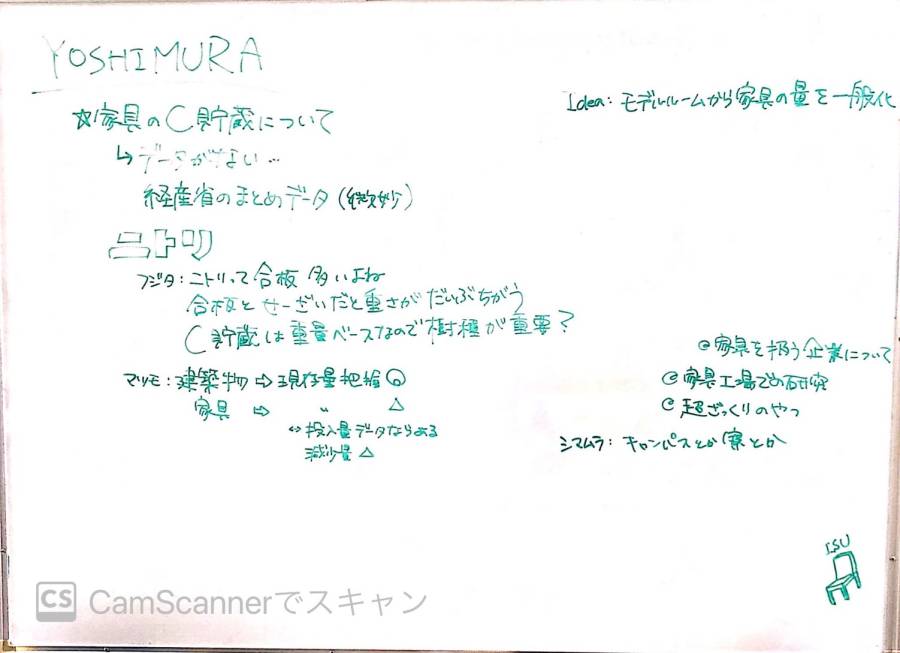 YOSHIMURA
☆家具のC貯蔵について
↳データがない…
経産省のまとめデータ(微妙)
ニトリ
フジタ:ニトリって合板 多いよね
合板とせーざいだと重さがだいぶちがう
C貯蔵は重量ベースなので樹種が重要?
マツモ:建築物⇒現存量把握◎
家具 ⇒ 〃 △
⇔投入量データならある
減少量△
Idea:モデルルームから家具の量を一般化
◎家具を扱う企業について
◎家具工場での研究
◎超ざっくりのやつ
シマムラ:キャンパスとか寮とか
ISU
CS CamScannerでスキャン